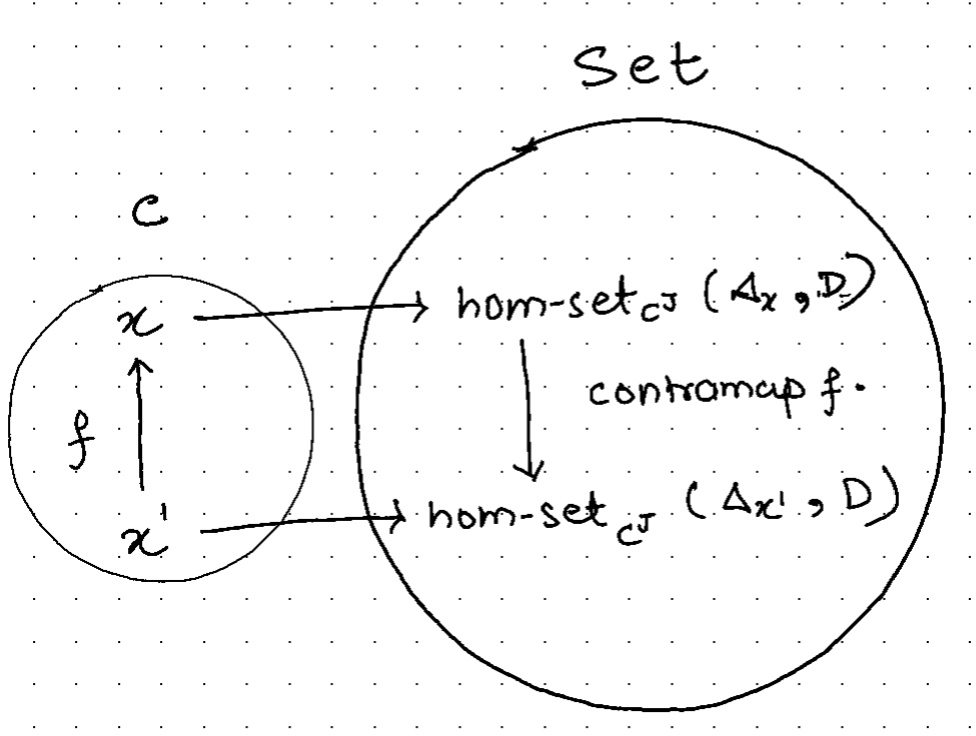 Set
C
x
hom-set_{C^J} (Δ_x , D)
f
contramap f.
x'
hom-set_{C^J} (Δ_{x'} , D)